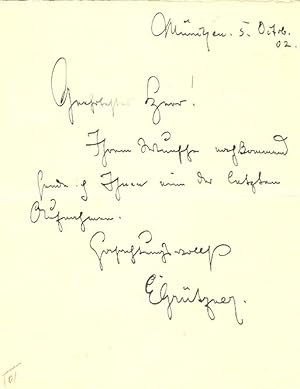 München. 5. Octob.
02.
Geehrtester Herr!
Ihrem Wunsche nachkommend
sende ich Ihnen eine der letzten
Aufnahmen.
Hochachtungsvollst
E Grützner.